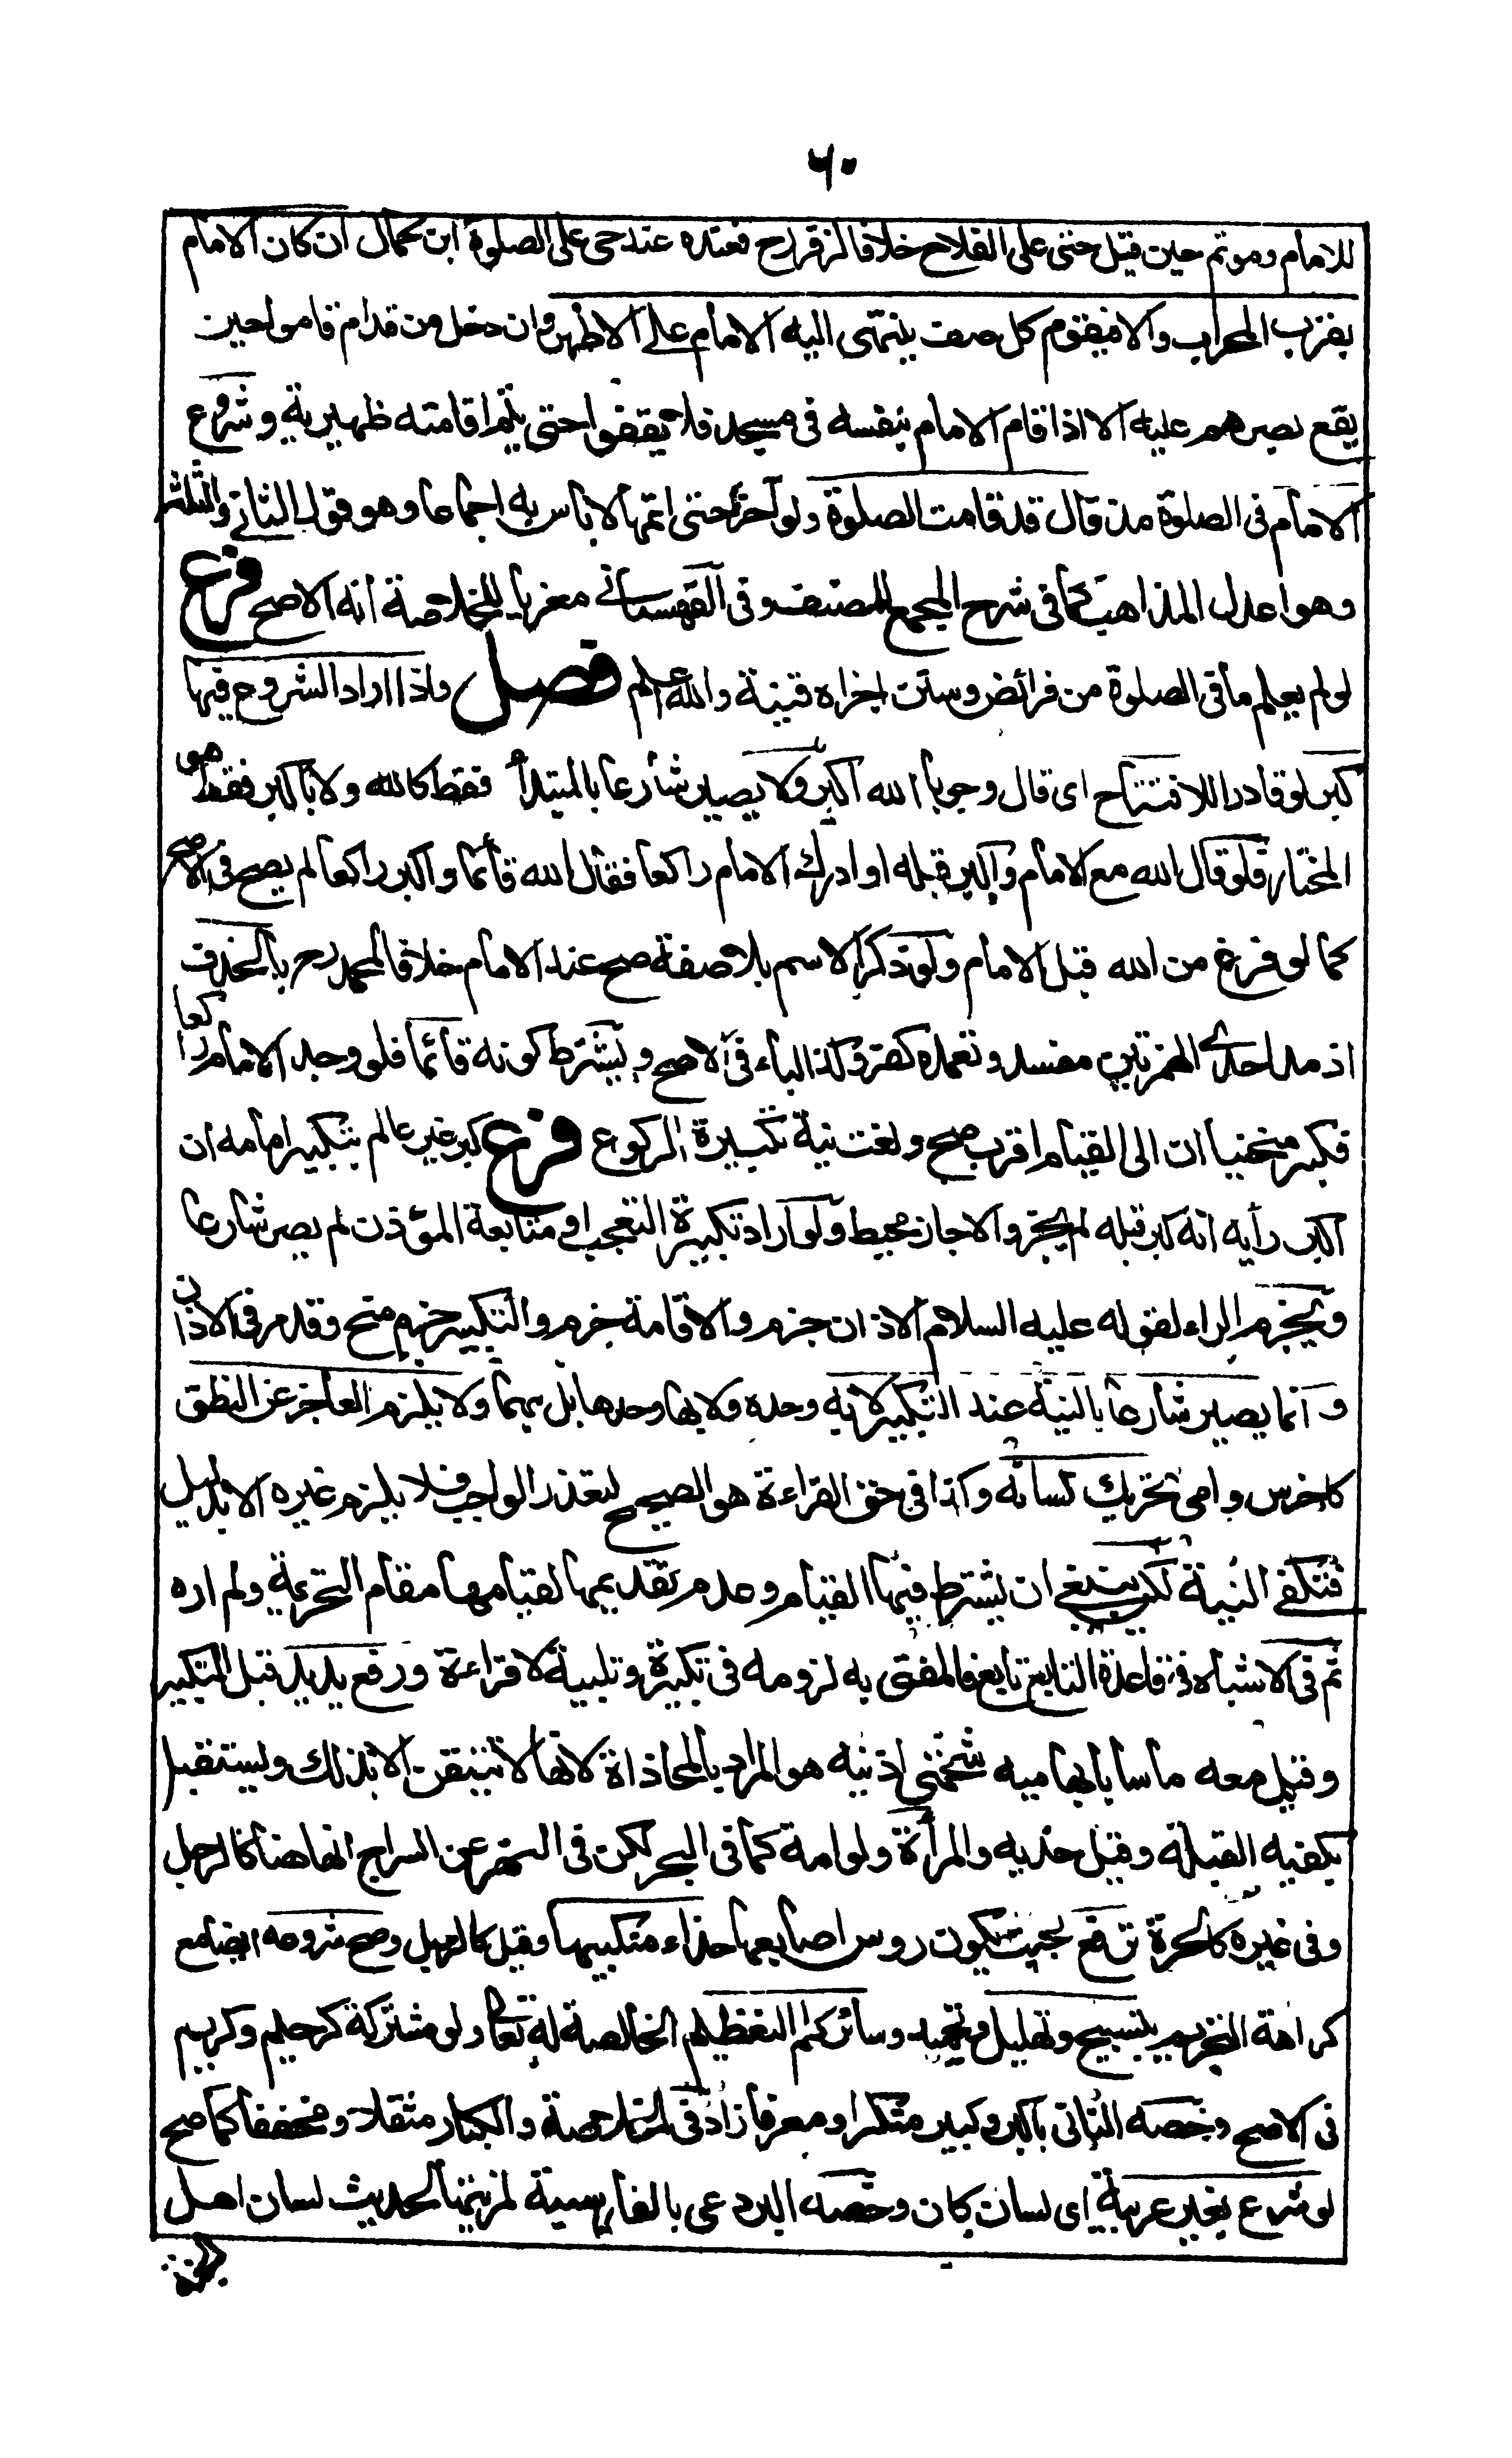 ٦٠
للامام وموتم حين قيل حي على الفلاح خلافا لزفر رح فعنده عند حي على الصلوة ابن كمال ان كان الامام
بقرب المحراب والا فيقوم كل صف ينتهي اليه الامام على الاظهر وان دخل من قدام قاموا حين
يقع بصرهم عليه الا اذا قام الامام بنفسه في مسجد فلا يقفوا حتى يتم اقامته ظهيرية وشروع
الامام في الصلوة مذ قال قد قامت الصلوة ولو اخر حتى اتمها لا باس به اجماعا وهو قول الثاني والثلثة
وهو اعدل المذاهب كما في شرح المجمع للمصنف وفي القهستاني معزيا للخلاصة انه الاصح فرع
لو لم يعلم ما في الصلوة من فرائض وسنن اجزاه قنية والله اعلم فصل واذا اراد الشروع فيها
كبر لو قادرا للافتتاح اي قال وجوبا الله اكبر ولا يصير شارعا بالمبتدأ فقط كالله ولا باكبر فقط هو
المختار فلو قال الله مع الامام واكبر قبله او ادرك الامام راكعا فقال الله قائما واكبر راكعا لم يصح في الاصح
كما لو فرغ من الله قبل الامام ولو ذكر الاسم بلا صفة صح عند الامام خلافا لمحمد رح بالحذف
اذ مد احدى الهمزتين مفسد وتعمده كفر وكذا الباء في الاصح ويشترط كونه قائما فلو وجد الامام راكعا
فكبر منحنيا ان الى القيام اقرب صح ولغت نية تكبيرة الركوع فرع كبر غير عالم بتكبير امامه ان
اكبر رأيه انه كبر قبله لم يجز والا جاز محيط ولو اراد تكبيرة التعجب او متابعة المؤذن لم يصر شارعا
ويجزم الراء لقوله عليه السلام الاذان جزم والاقامة جزم والتكبير جزم منح وقد مر في الاذان
و انما يصير شارعا بالنية عند التكبير لا به وحده ولا بها وحدها بل بهما ولا يلزم العاجز عن النطق
كاخرس وامي تحريك لسانه وكذا في حق القراءة هو الصحيح لتعذر الواجب فلا يلزم غيره الا بدليل
فتكفي النية لكن ينبغي ان يشترط فيها القيام وعدم تقديمها لقيامها مقام التحريمة ولم اره
ثم في الاشباه في قاعدة التابع تابع فالمفتى به لزومه في تكبيرة وتلبية لا قراءة ورفع يديه قبل التكبير
وقيل معه ماسا بابهاميه شحمتي اذنيه هو المراد بالمحاذاة لانها لا تتيقن الا بذلك ويستقبل
بكفيه القبلة وقيل خديه والمرأة ولو امة كما في البحر لكن في النهر عن السراج انها هنا كالرجل
وفي غيره كالحرة ترفع بحيث يكون روس اصابعها حذاء منكبيها وقيل كالرجل وصح شروعه ايضا مع
كراهة التحريم بتسبيح وتهليل وتحميد وسائر كلم التعظيم الخالصة له تعا ولو مشتركة كرحيم وكريم
في الاصح وخصه الثاني باكبر وكبير منكرا ومعرفا زاد في الخلاصة والكبار مثقلا ومخففا كما صح
لو شرع بغير عربية اي لسان كان وخصه البردعي بالفارسية لمزيتها لحديث لسان اهل